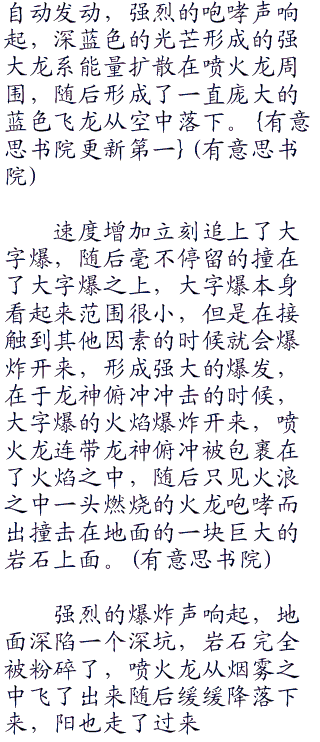 自动发动，强烈的咆哮声响
起，深蓝色的光芒形成的强
大龙系能量扩散在喷火龙周
围，随后形成了一直庞大的
蓝色飞龙从空中落下。{有意
思书院更新第一}(有意思书
院)
速度增加立刻追上了大
字爆，随后毫不停留的撞在
了大字爆之上，大字爆本身
看起来范围很小，但是在接
触到其他因素的时候就会爆
炸开来，形成强大的爆发，
在于龙神俯冲冲击的时候，
大字爆的火焰爆炸开来，喷
火龙连带龙神俯冲被包裹在
了火焰之中，随后只见火浪
之中一头燃烧的火龙咆哮而
出撞击在地面的一块巨大的
岩石上面。(有意思书院)
强烈的爆炸声响起，地
面深陷一个深坑，岩石完全
被粉碎了，喷火龙从烟雾之
中飞了出来随后缓缓降落下
来，阳也走了过来